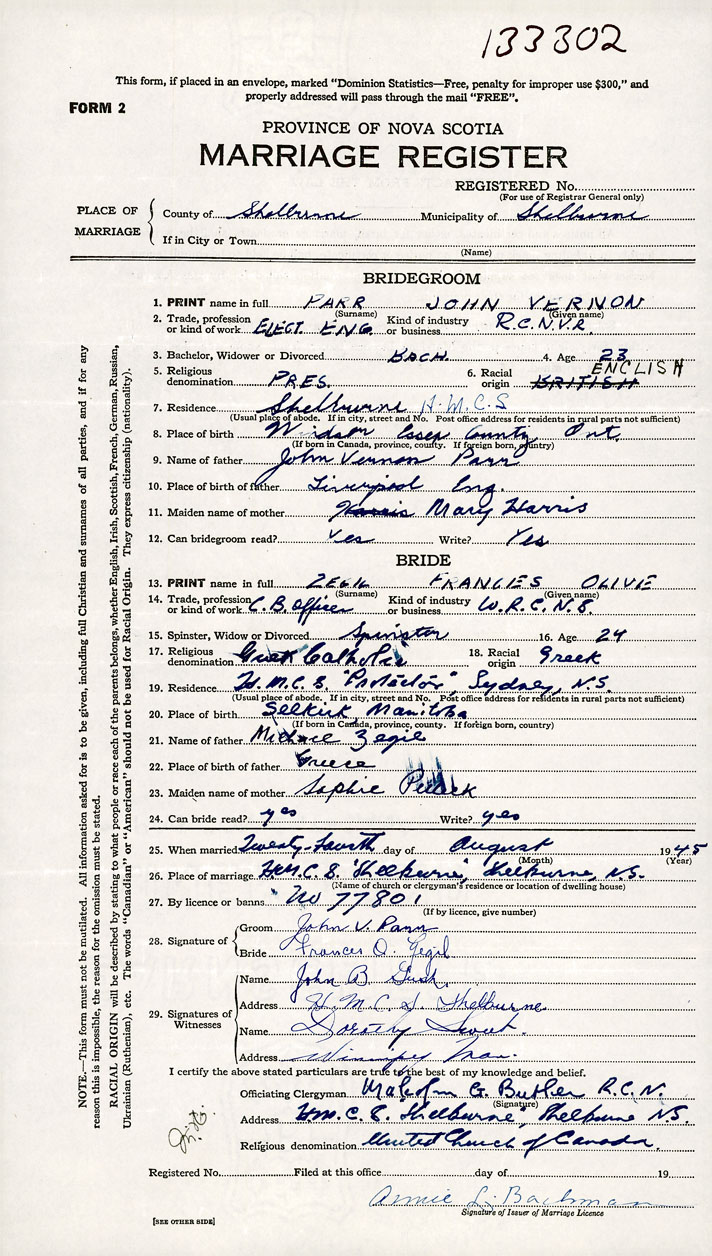 133302
This form, if placed in an envelope, marked "Dominion Statistics—Free, penalty for improper use $300," and
properly addressed will pass through the mail "FREE".
FORM 2
PROVINCE OF NOVA SCOTIA
MARRIAGE REGISTER
REGISTERED No.
(For use of Registrar General only)
PLACE OF MARRIAGE
County of Shelburne Municipality of Shelburne
If in City or Town
(Name)
BRIDEGROOM
1. PRINT name in full PARR JOHN VERNON
(Surname) (Given name)
2. Trade, profession or kind of work ELECT. ENG. Kind of industry or business R.C.N.V.R.
3. Bachelor, Widower or Divorced BACH. 4. Age 23
5. Religious denomination PRES. 6. Racial origin BRITISH ENGLISH
7. Residence Shelburne H.M.C.S
(Usual place of abode. If in city, street and No. Post office address for residents in rural parts not sufficient)
8. Place of birth Windsor Essex County Ont.
(If born in Canada, province, county. If foreign born, country)
9. Name of father John Vernon Parr
10. Place of birth of father Liverpool Eng.
11. Maiden name of mother Harris Mary Harris
12. Can bridegroom read? Yes Write? Yes
BRIDE
13. PRINT name in full ZEGIL FRANCIES OLIVE
(Surname) (Given name)
14. Trade, profession or kind of work C.B. Officer Kind of industry or business W.R.C.N.S.
15. Spinster, Widow or Divorced Spinster 16. Age 24
17. Religious denomination Greek Catholic 18. Racial origin Greek
19. Residence H.M.C.S. "Protector", Sydney, N.S.
(Usual place of abode. If in city, street and No. Post office address for residents in rural parts not sufficient)
20. Place of birth Selkirk, Manitoba
(If born in Canada, province, county. If foreign born, country)
21. Name of father Zegil
22. Place of birth of father Greece
23. Maiden name of mother Sophie
24. Can bride read? yes Write? yes
25. When married Twenty-Fourth day of August 1945
(Month) (Year)
26. Place of marriage H.M.C.S. "Shelburne", Shelburne, N.S.
(Name of church or clergyman's residence or location of dwelling house)
27. By licence or banns No 77801
(If by licence, give number)
28. Signature of
Groom John V. Parr
Bride Frances O. Zegil
29. Signatures of Witnesses
Name John B.
Address H.M.C.S. Shelburne
Name Dorothy Sweet.
Address Winnipeg Man.
I certify the above stated particulars are true to the best of my knowledge and belief.
Officiating Clergyman Malcolm G. Butler R.C.N.
(Signature)
Address H.M.C.S. "Shelburne", Shelburne N.S.
Religious denomination United Church of Canada.
Registered No. Filed at this office day of 19
Annie L. Bachman
Signature of Issuer of Marriage Licence
[SEE OTHER SIDE]
NOTE.—This form must not be mutilated. All information asked for is to be given, including full Christian and surnames of all parties, and if for any
reason this is impossible, the reason for the omission must be stated.
RACIAL ORIGIN will be described by stating to what people or race each of the parents belongs, whether English, Irish, Scottish, French, German, Russian,
Ukrainian (Ruthenian), etc. The words "Canadian" or "American" should not be used for Racial Origin. They express citizenship (nationality).